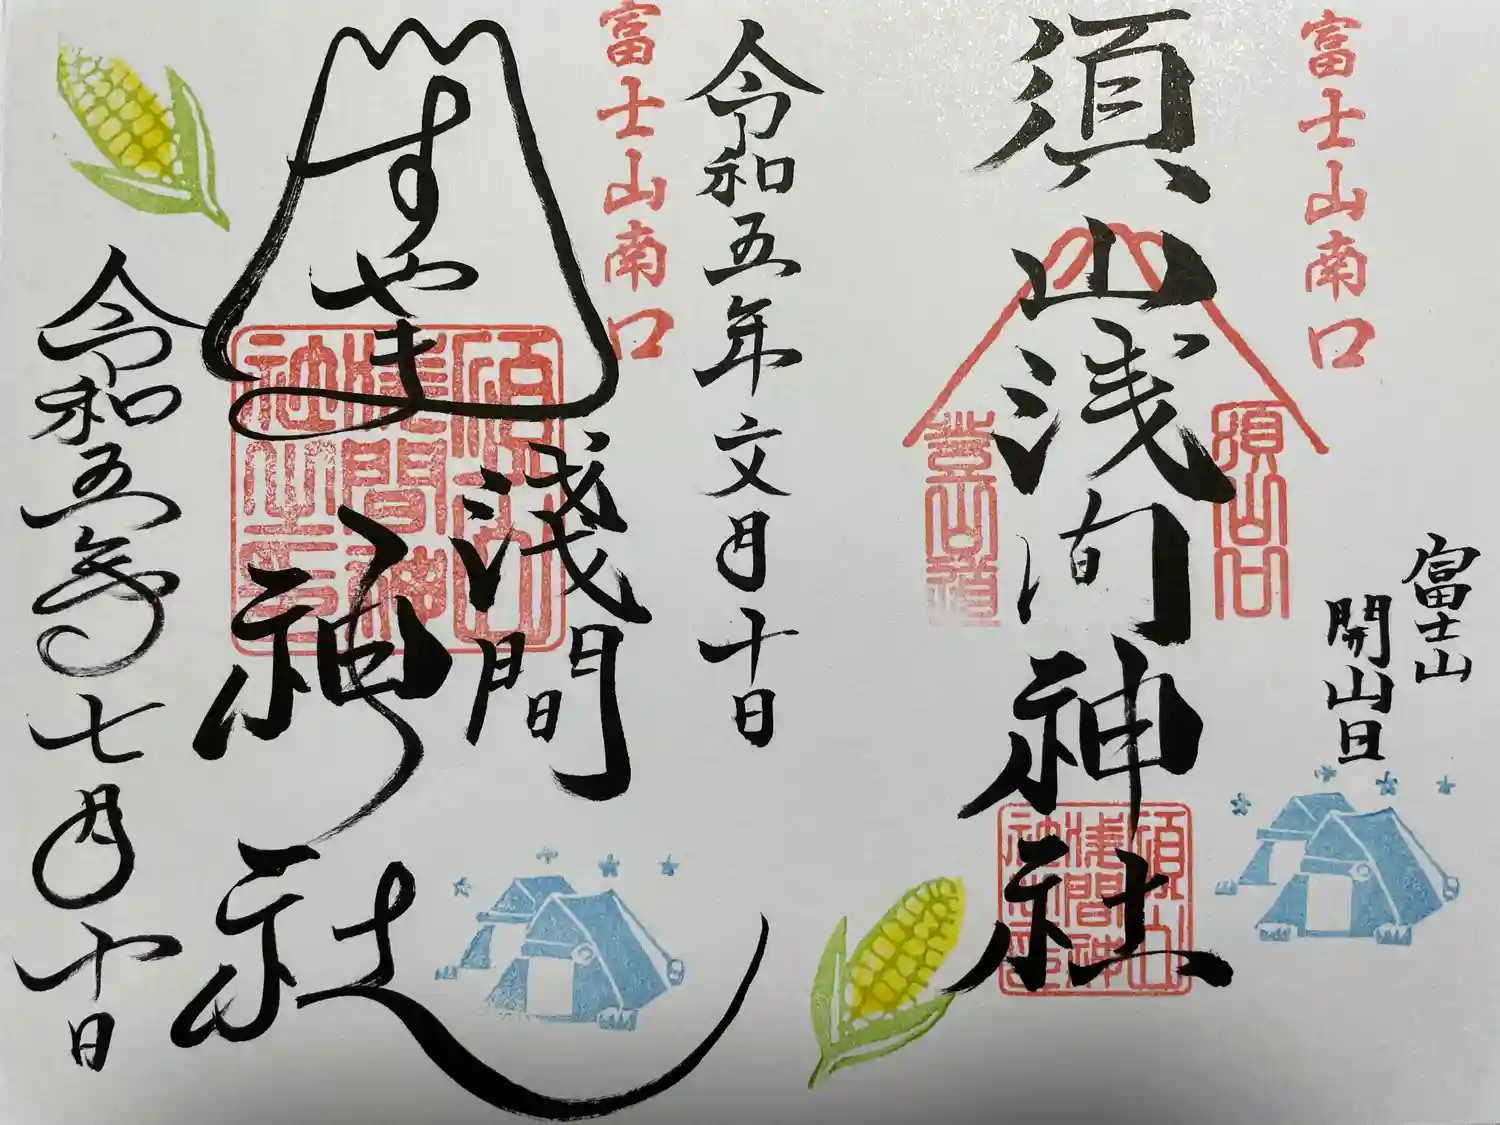 富士山南口
須山浅间神社
須山口
登山道
須山
浅間神
社之印
富士山
開山日
令和五年文月十日
富士山南口
すやま
浅間
神社
須山
浅間神
社之印
令和五年七月十日